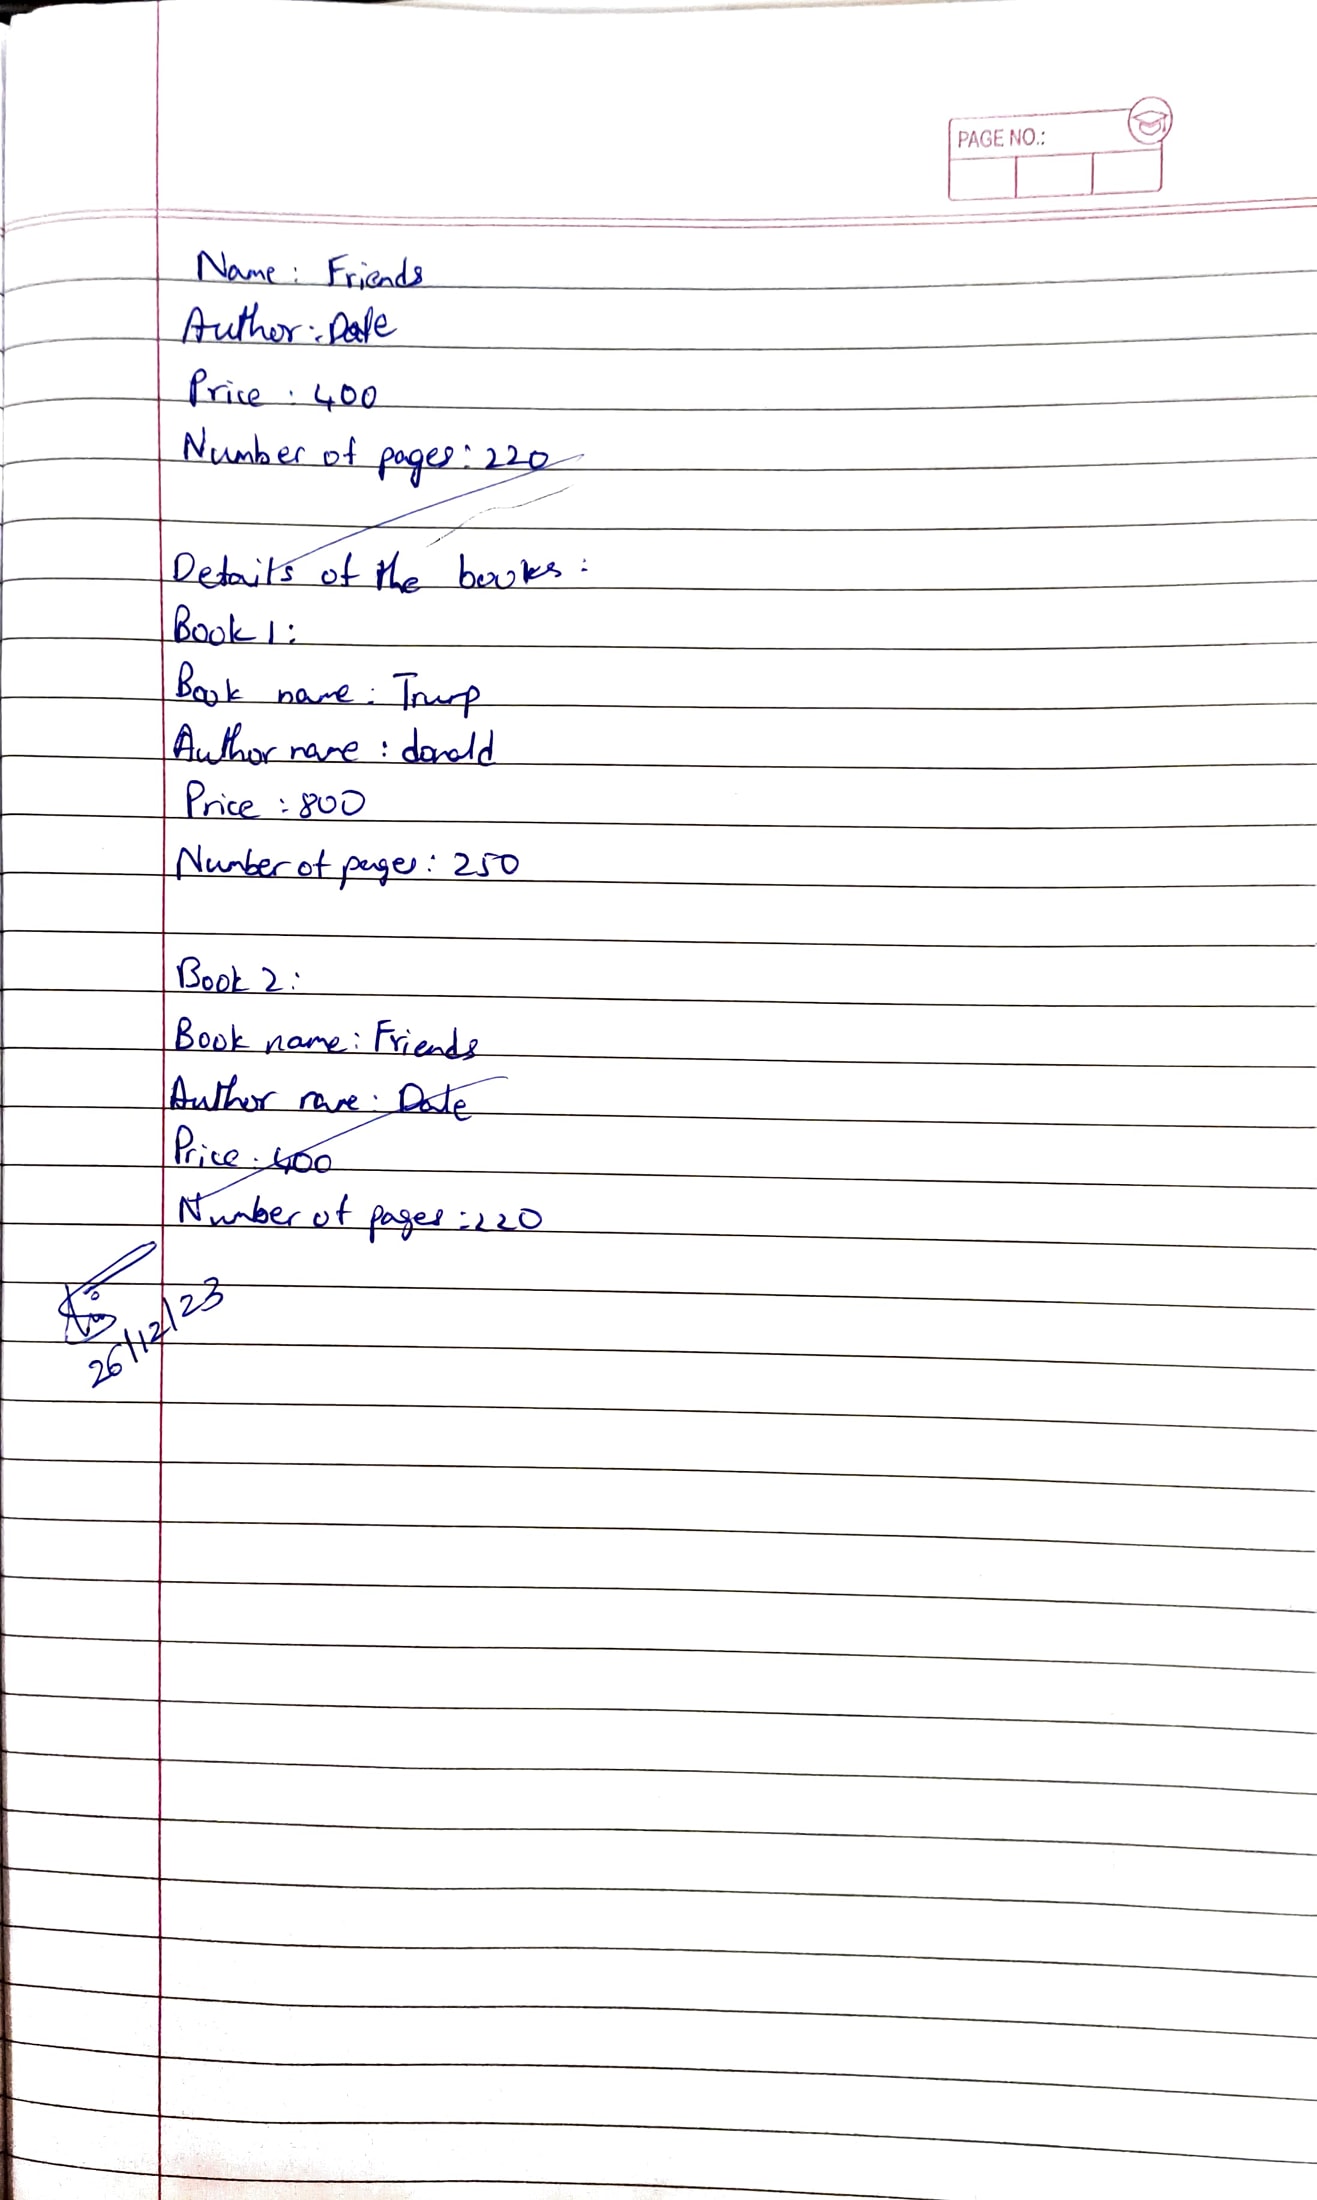 PAGE NO.:
Name : Friends
Author : Date
Price : 400
Number of pages : 220
Details of the books :
Book 1 :
Book name : Trump
Author name : donald
Price : 800
Number of pages : 250
Book 2 :
Book name : Friends
Author name : Date
Price : 400
Number of pages : 220
26/12/23